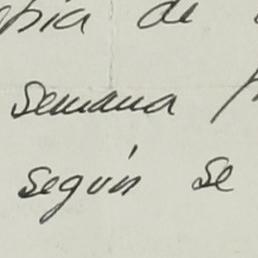 de
semana
según se